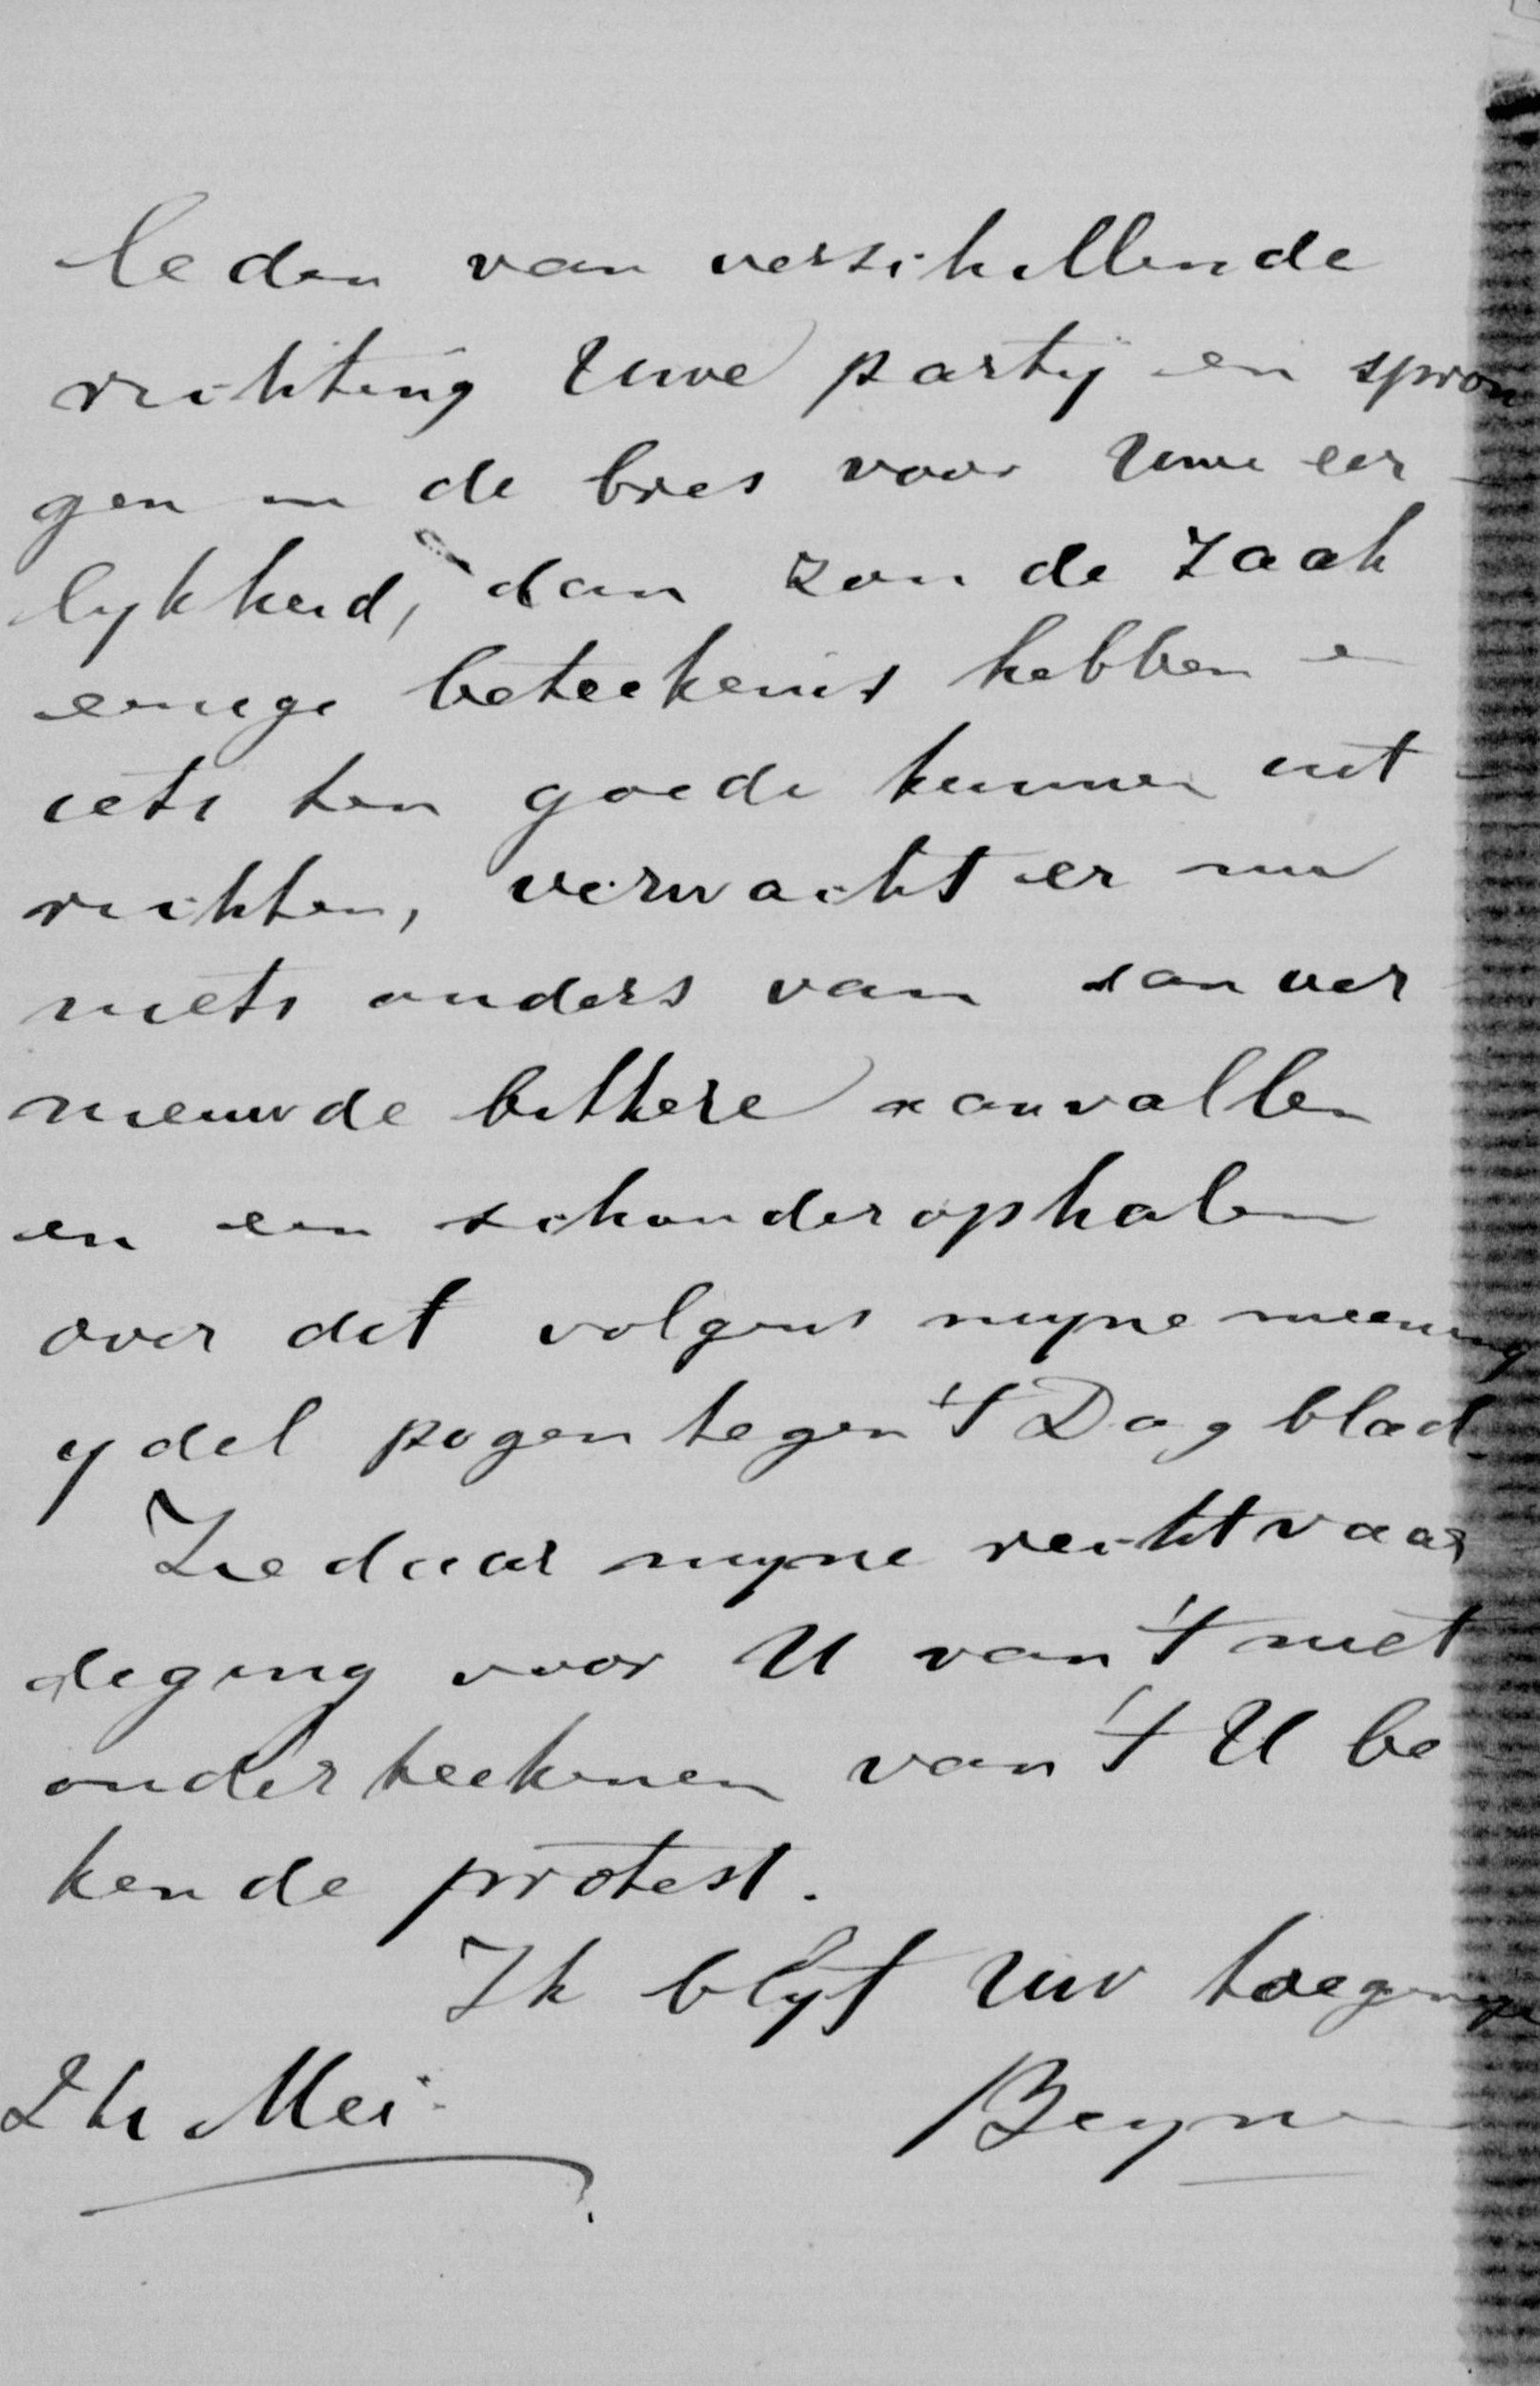 leden van verschillende
richting Uwe partij en spron
gen in de bres voor Uwe eer-
lykheid, dan zou de zaak
eenige beteekenis hebben en
iets ten goede kunnen uit-
richten, verwacht er nu
niets anders van dan ver-
nieuwde bittere aanvallen
en een schouderophalen
over dit volgens myne meening
ydel pogen tegen 't Dagblad.
Zie daar myne rechtvaar
diging voor U van 't niet
onderteekenen van 't U be
kende protest.
Ik blyf Uw toegenegen
Mei